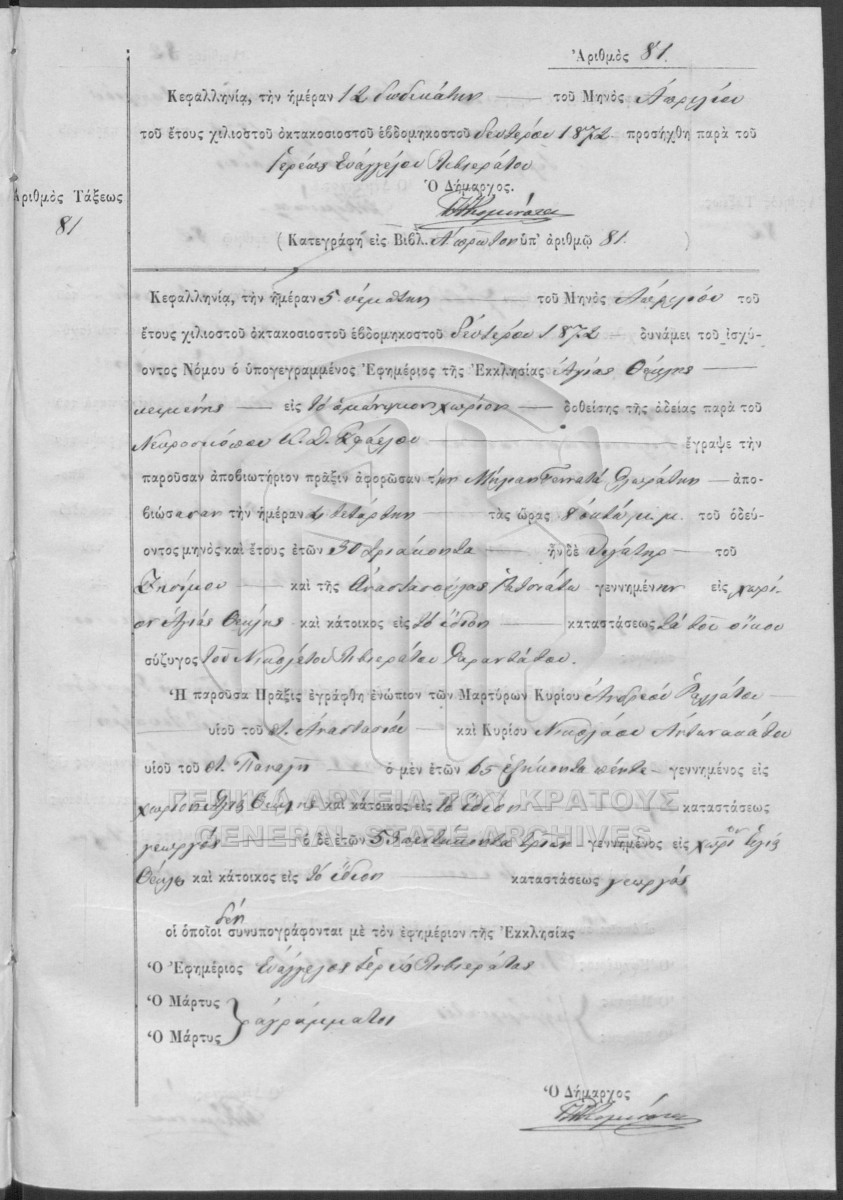 Ἀριθμὸς 81.
Κεφαλληνίᾳ, τὴν ἡμέραν 12 δωδεκάτην τοῦ Μηνὸς Ἀπριλίου
τοῦ ἔτους χιλιοστοῦ ὀκτακοσιοστοῦ ἑβδομηκοστοῦ δευτέρου 1872 προσήχθη παρὰ τοῦ
Ἱερέως Εὐαγγέλου
Ὁ Δήμαρχος.
Ἀριθμὸς Τάξεως
81
( Κατεγράφη εἰς Βιβλ. Α πρῶτον ὑπ' ἀριθμῷ 81. )
Κεφαλληνίᾳ, τὴν ἡμέραν 5 πέμπτην τοῦ Μηνὸς Ἀπριλίου τοῦ
ἔτους χιλιοστοῦ ὀκτακοσιοστοῦ ἑβδομηκοστοῦ δευτέρου 1872 δυνάμει τοῦ ἰσχύ-
οντος Νόμου ὁ ὑπογεγραμμένος Ἐφημέριος τῆς Ἐκκλησίας Ἁγίας Θέκλης
κειμένης εἰς τὸ ὁμώνυμον χωρίον δοθείσης τῆς ἀδείας παρὰ τοῦ
Νεκροσκόπου ἔγραψε τὴν
παροῦσαν ἀποβιωτήριον πρᾶξιν ἀφορῶσαν τὴν ἀπο-
βιώσασαν τὴν ἡμέραν 4 τετάρτην τὰς ὥρας 8 ὀκτὼ μ.μ. τοῦ ὁδεύ-
οντος μηνὸς καὶ ἔτους ἐτῶν 30 τριάκοντα ἦν δὲ θυγάτηρ τοῦ
Ζησίμου καὶ τῆς Ἀναστασούλας γεννημένην εἰς χωρί-
ον Ἁγίας Θέκλης καὶ κάτοικος εἰς τὸ ἴδιον καταστάσεως τὰ τοῦ οἴκου
σύζυγος τοῦ Νικολέτου
Ἡ παροῦσα Πρᾶξις ἐγράφθη ἐνώπιον τῶν Μαρτύρων Κυρίου Ἀνδρέου
υἱοῦ τοῦ Ἀναστασίου καὶ Κυρίου Νικολάου
υἱοῦ τοῦ Παναγῆ ὁ μὲν ἐτῶν 65 ἑξήκοντα πέντε γεννημένος εἰς
χωρίον Ἁγ. Θέκλης καὶ κάτοικος εἰς τὸ ἴδιον καταστάσεως
ΓΕΝΙΚΑ ΑΡΧΕΙΑ ΤΟΥ ΚΡΑΤΟΥΣ
GENERAL STATE ARCHIVES
γεωργός ὁ δὲ ἐτῶν 53 πεντήκοντα τριῶν γεννημένος εἰς χωρίον Ἁγίας
Θέκλης καὶ κάτοικος εἰς τὸ ἴδιον καταστάσεως γεωργός
οἱ ὁποῖοι δὲν συνυπογράφονται μὲ τὸν ἐφημέριον τῆς Ἐκκλησίας
Ὁ Ἐφημέριος Εὐάγγελος ἱερεὺς
Ὁ Μάρτυς
ἀγράμματοι
Ὁ Μάρτυς
Ὁ Δήμαρχος